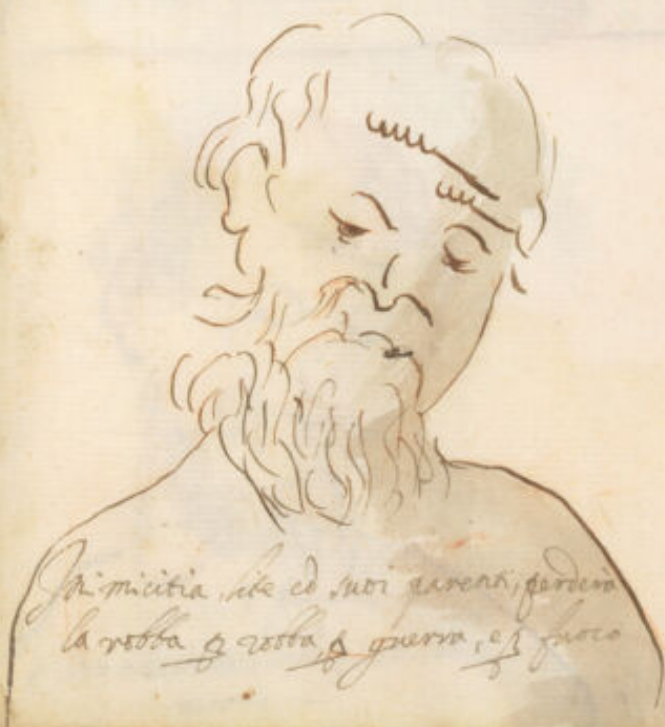 Inimicitia, lite cō suoi parenti, perderà
la robba ꝑ robba, ꝑ guerra, e ꝑ fuoco